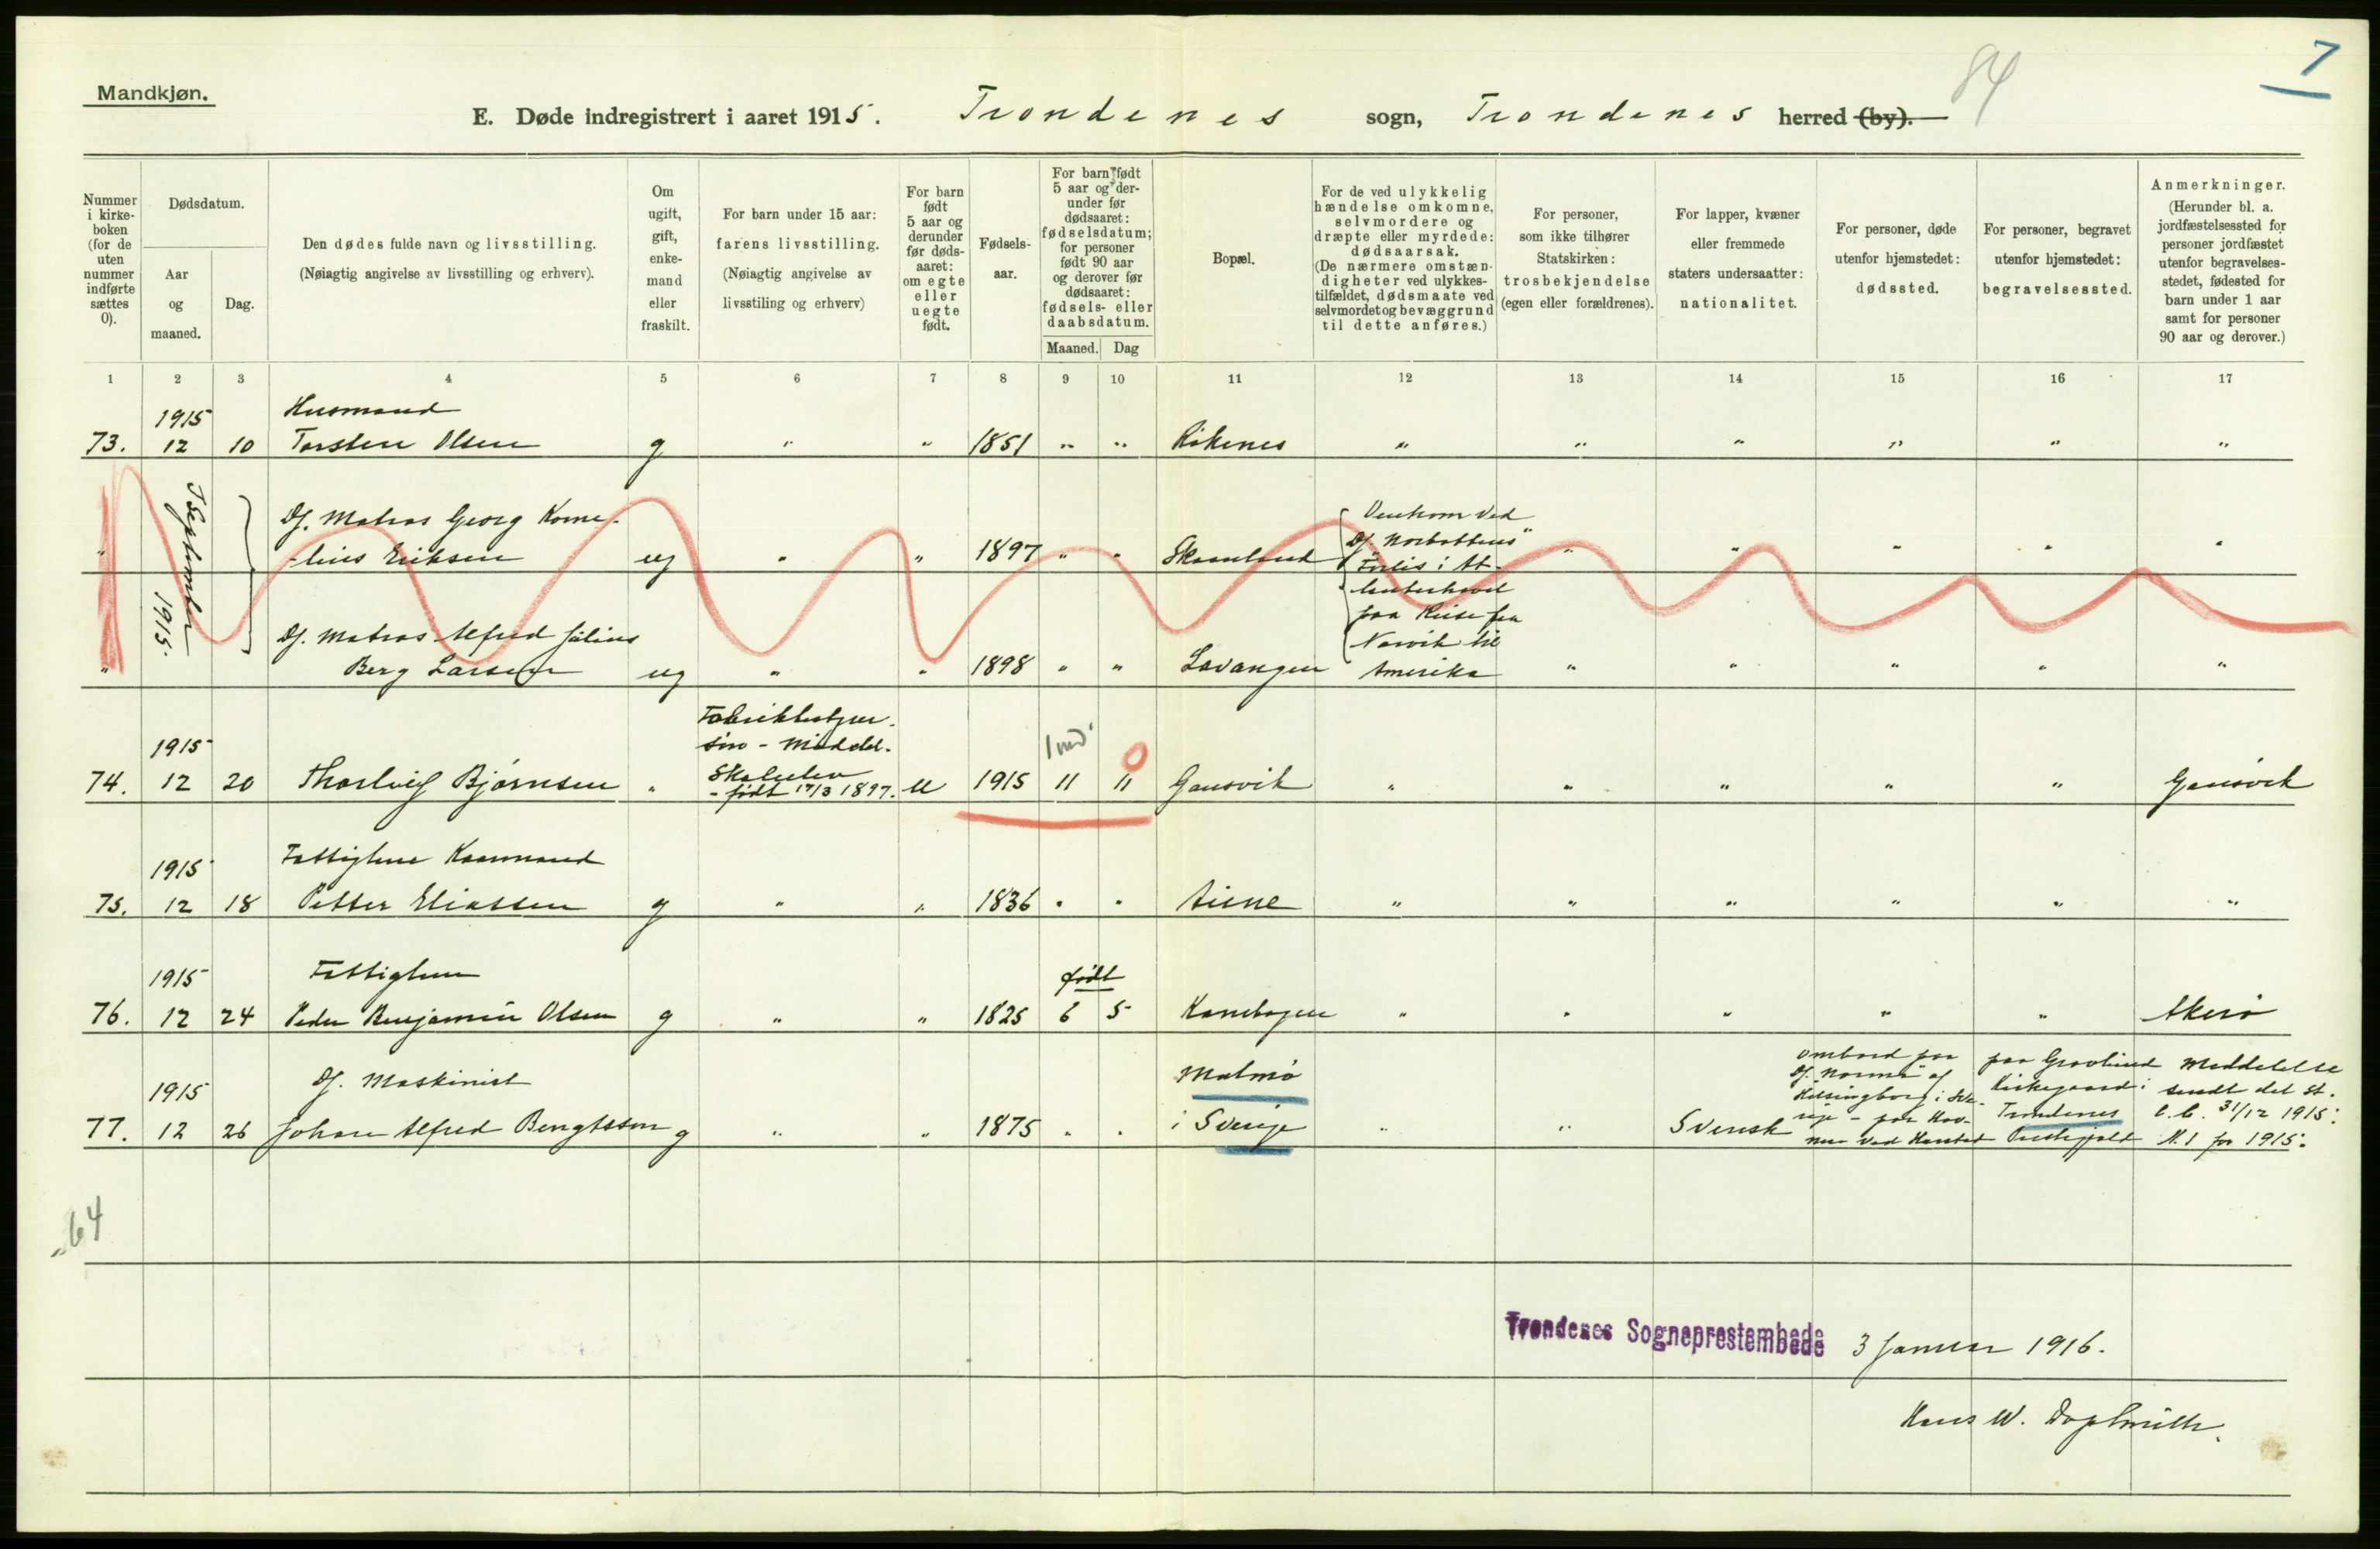 7
84
Mandkjøn.
E. Døde indregistrert i aaret 1915. Trondenes sogn, Trondenes herred (by).
Nummer i kirke- boken (for de uten nummer indførte sættes 0).
Dødsdatum.
Aar og maaned.
Dag.
Den dødes fulde navn og livsstilling.
(Nøiagtig angivelse av livsstilling og erhverv).
Om ugift, gift, enke- mand eller fraskilt.
For barn under 15 aar:
farens livsstilling.
(Nøiagtig angivelse av
livsstiling og erhverv)
For barn født 5 aar og derunder før døds- aaret: om egte eller uegte født.
Fødsels- aar.
For barn født 5 aar og der- under før dødsaaret: fødselsdatum; for personer født 90 aar og derover før dødsaaret: fødsels- eller daabsdatum.
Maaned. Dag
Bopæl.
For de ved ulykkelig hændelse omkomne, selvmordere og dræpte eller myrdede: dødsaarsak. (De nærmere omstæn- digheter ved ulykkes- tilfældet, dødsmaate ved selvmordet og bevæggrund til dette anføres.)
For personer, som ikke tilhører Statskirken: trosbekjendelse (egen eller forældrenes).
For lapper, kvæner eller fremmede staters undersaatter: nationalitet.
For personer, døde utenfor hjemstedet: dødssted.
For personer, begravet utenfor hjemstedet: begravelsessted.
Anmerkninger. (Herunder bl. a. jordfæstelsessted for personer jordfæstet utenfor begravelses- stedet, fødested for barn under 1 aar samt for personer 90 aar og derover.)
1 2 3 4 5 6 7 8 9 10 11 12 13 14 15 16 17
1915 Husmand
73. 12 10 Torsten Olsen g " " 1851 " " Rökenes " " " " " "
I September 1915.
Df. Matros Georg Korne-
" -lius Eriksen ug " " 1897 " " Skaanland " " " " "
Omkom ved
Df. "Norbottens"
Forlis i At-
lanterhavet
paa Reise fra
Narvik til
Amerika
Df. Matros Alfred Julius
" Berg Larsen ug " " 1898 " " Lavangen " " " " "
Fabrikbestyrer.
1915 sin - Middel.
Skoleelev
- født 17/3 1897.
1 md. 0
74. 12 20 Thorleif Bjørnsen " u 1915 11 11 Gausvik " " " " " Gausvik
1915 Fattiglem Kaarmand
75. 12 18 Petter Eliassen g " " 1836 " " Aune " " " " " "
1915 Fattiglem født
76. 12 24 Peder Benjamin Olsen g " " 1825 6 5 Kanebogen " " " " " Akerö
1915 Df. Maskinist Malmö
77. 12 26 Johan Alfred Bengtsson g " " 1875 " " i Sverige " " Svensk
ombord paa
Df. "Norma" af
Helsingborg i Sve-
rige - paa Hav-
nen ved Harstad
paa Gravlund
Kirkegaard i
Trondenes
Prestegjeld
Meddelelse
sendt det St.
C. B. 31/12 1915:
N. 1 for 1915.
64
Trondenes Sogneprestembede 3 Januar 1916.
Hans W.